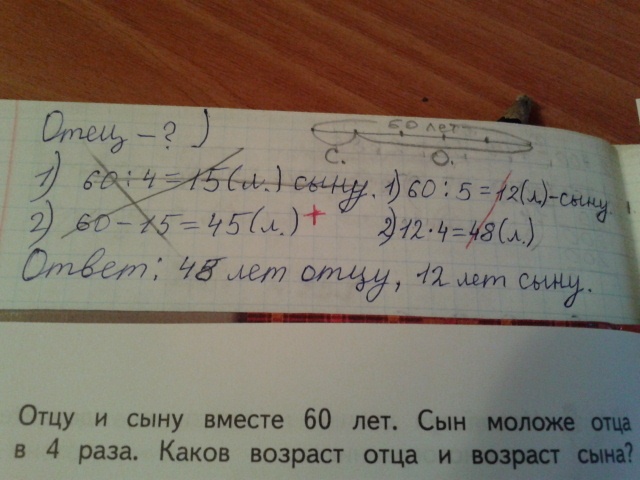 Отец – ? )
60 лет
С. О.
1) 60 : 4 = 15 (л.) сыну. 1) 60 : 5 = 12 (л.) – сыну.
2) 60 – 15 = 45 (л.) + 2) 12 · 4 = 48 (л.)
Ответ: 48 лет отцу, 12 лет сыну.
Отцу и сыну вместе 60 лет. Сын моложе отца
в 4 раза. Каков возраст отца и возраст сына?